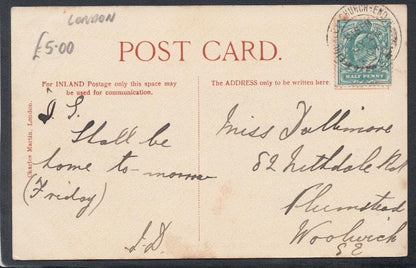 LONDON
£5.00
POST CARD.
For INLAND Postage only this space may
be used for communication.
The ADDRESS only to be written here.
(Charles Martin, London.
HALF PENNY
D.S.
Shall be
home to-morrow
(Friday)
J.D.
Miss Dallimore
82 Nithdale Rd
Plumstead
Woolwich
S.E.